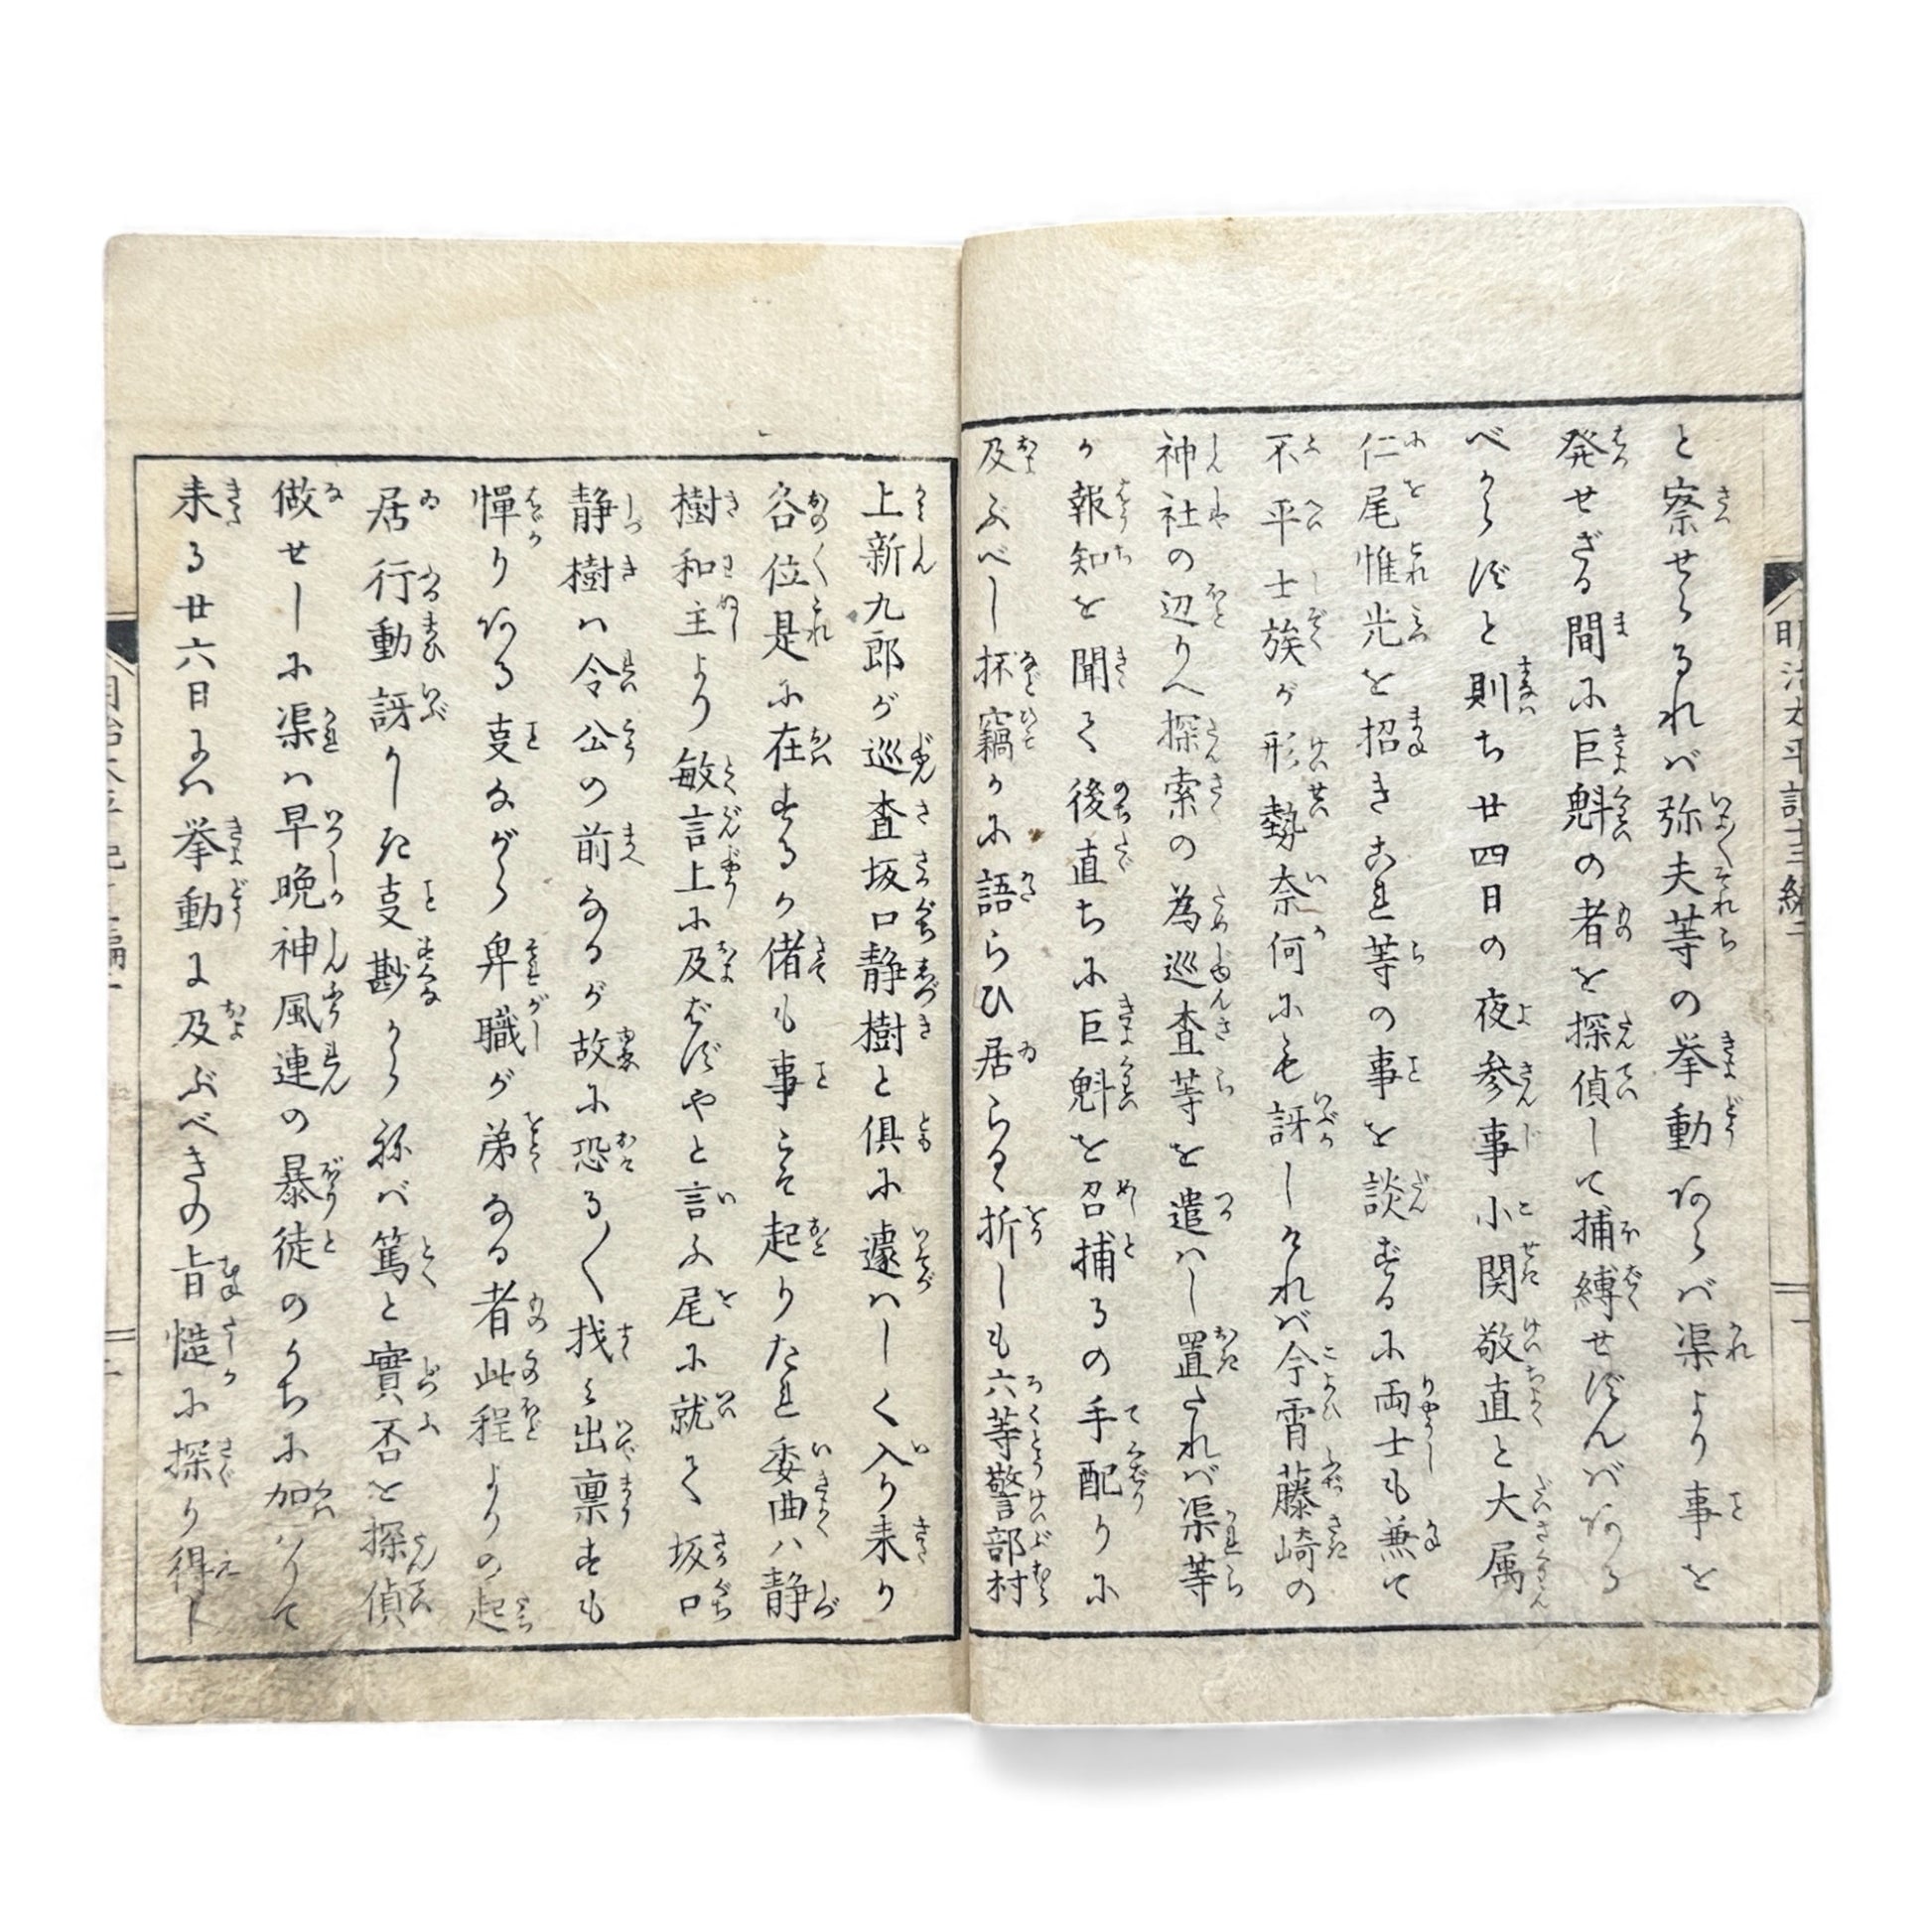 と察せらるれバ弥夫等の挙動あらバ渠より事を
発せざる間に巨魁の者を探偵して捕縛せずんバある
べからずと則ち廿四日の夜参事小関敬直と大属
仁尾惟光を招きこれ等の事を談ずるに両士も兼て
不平士族が形勢奈何にも訝しけれバ今宵藤崎の
神社の辺りへ探索の為巡査等を遣ハし置たれバ渠等
が報知を聞て後直ちに巨魁を召捕るの手配りに
及ぶべし抔竊かに語らひ居らるゝ折しも六等警部村
上新九郎が巡査坂口静樹と倶に遽ハしく入り来り
各位是に在するか偖も事こそ起りたれ委曲ハ静
樹和主より敏言上に及ばずやと言ふ尾に就て坂口
静樹ハ令公の前なるが故に恐る〱找み出稟すも
憚りある叓ながら卑職が弟なる者此程よりの起
居行動訝かしき叓尠からねバ篤と實否を探偵
做せしに渠ハ早晩神風連の暴徒のうちに加ハりて
来る廿六日にハ挙動に及ぶべきの旨慥に探り得ト
明治太平記十三編二